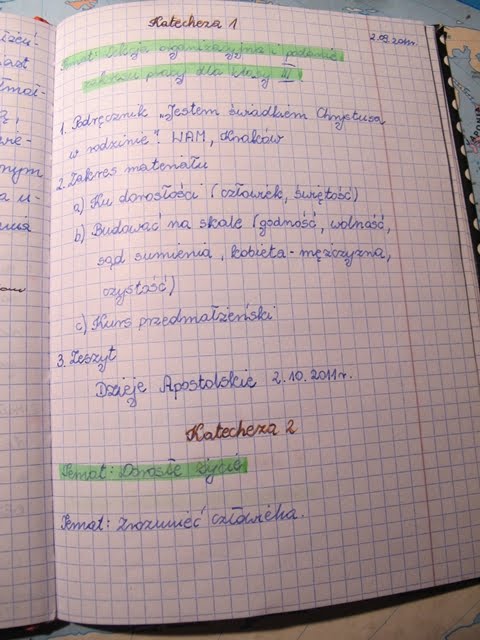 Katecheza 1
2.09.2011r.
Temat: Lekcja organizacyjna i podanie
zakresu pracy dla klasy III
1. Podręcznik „Jestem świadkiem Chrystusa
w rodzinie". WAM, Kraków
2. Zakres materiału
a) Ku dorosłości (człowiek, świętość)
b) Budować na skale (godność, wolność,
sąd sumienia, kobieta-mężczyzna,
czystość)
c) Kurs przedmałżeński
3. Zeszyt
Dzieje Apostolskie 2.10.2011r.
Katecheza 2
Temat: Dorosłe życie
Temat: Zrozumieć człowieka.